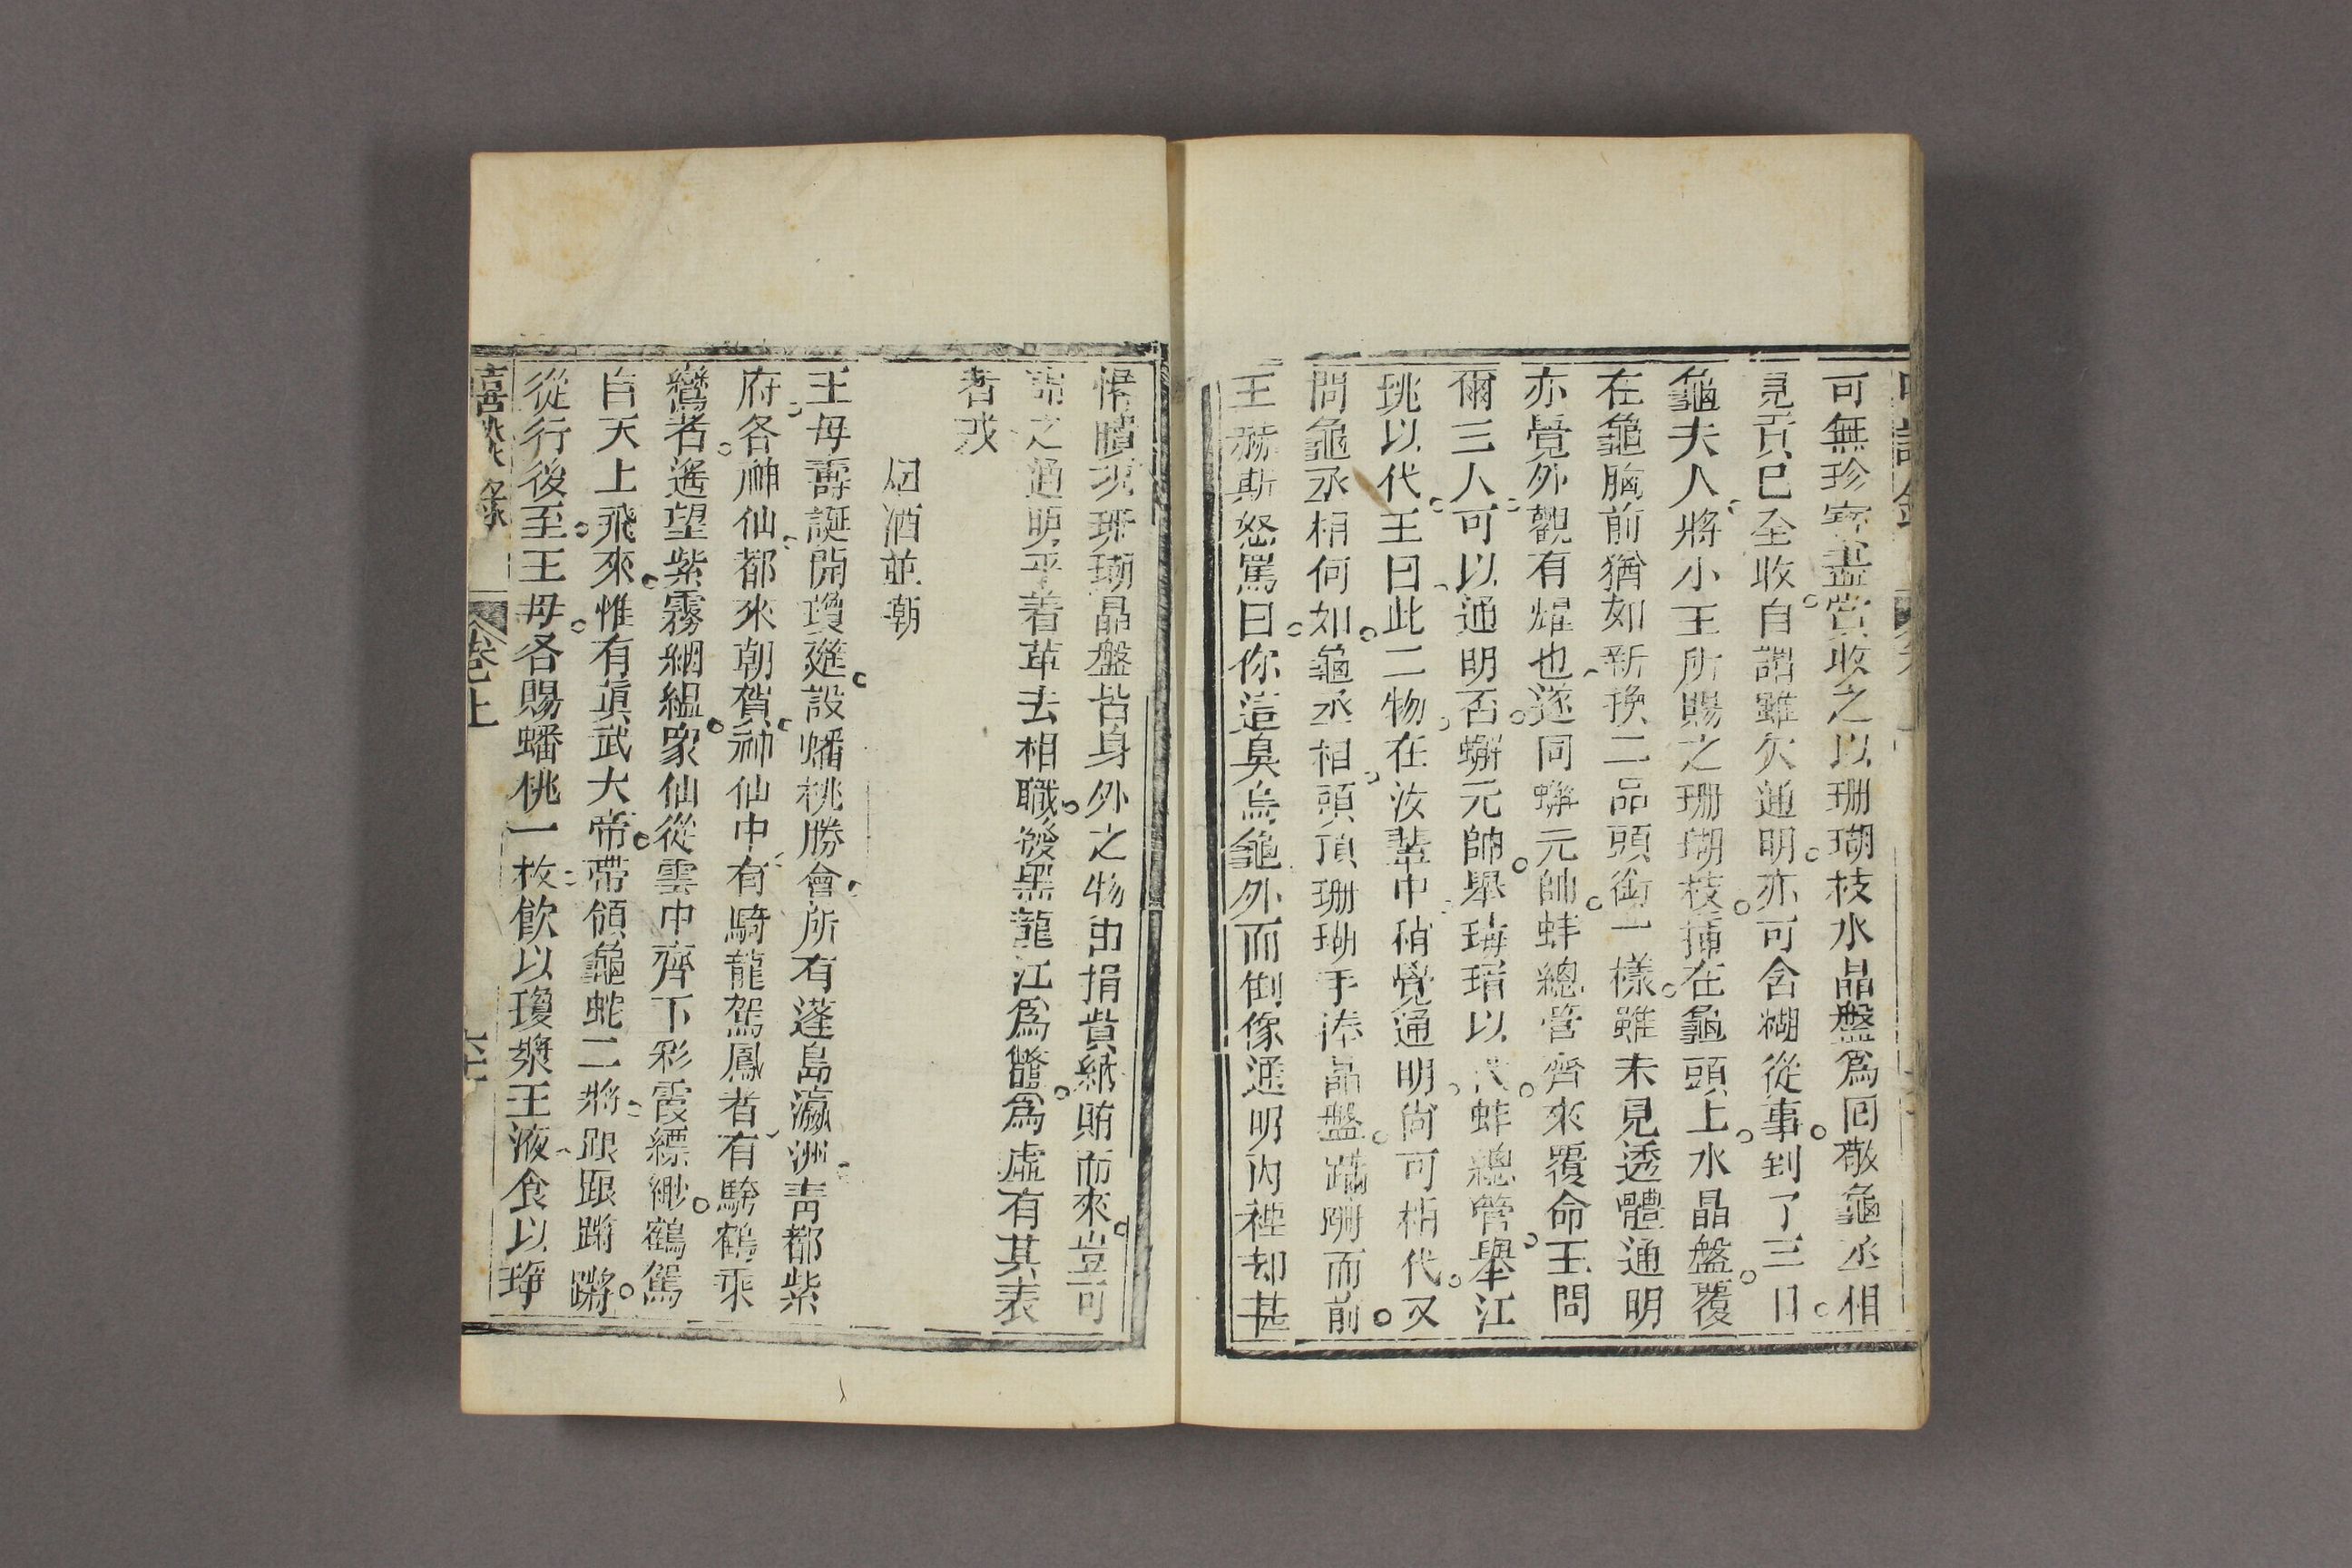 可無珍寶盡賞收之以珊瑚枝水晶盤爲囘敬龜丞相
見貢已全收自謂雖欠通明亦可含糊從事到了三日
龜夫人將小王所賜之珊瑚枝插在龜頭上水晶盤覆
在龜胸前猶如新換二品頭銜一樣雖未見透體通明
亦覺外觀有燿也遂同蠏元帥蚌總管齊來覆命王問
爾三人可以通明否蠏元帥舉瑇瑁以代蚌總管舉江
珧以代王曰此二物在汝輩中稍覺通明尚可相代又
問龜丞相何如龜丞相頭頂珊瑚手捧晶盤蹣跚而前
王赫斯怒罵曰你這臭烏龜外而倒像通明內裡却甚
懵瞔況珊瑚晶盤皆身外之物由捐貲納賄而來豈可
謂之通明乎着革去相職發黑龍江爲鼈爲虛有其表
者戒
囚酒並嘲
王母壽誕開瓊筵設蟠桃勝會所有蓬島瀛洲靑都紫
府各神仙都來朝賀神仙中有騎龍駕鳳者有驂鶴乘
鸞者遙望紫霧絪縕眾仙從雲中齊下彩霞縹緲鶴駕
自天上飛來惟有眞武大帝帶領龜蛇二將踉踉蹡蹡
從行後至王母各賜蟠桃一枚飲以瓊漿王液食以琤
嘻談錄
卷上